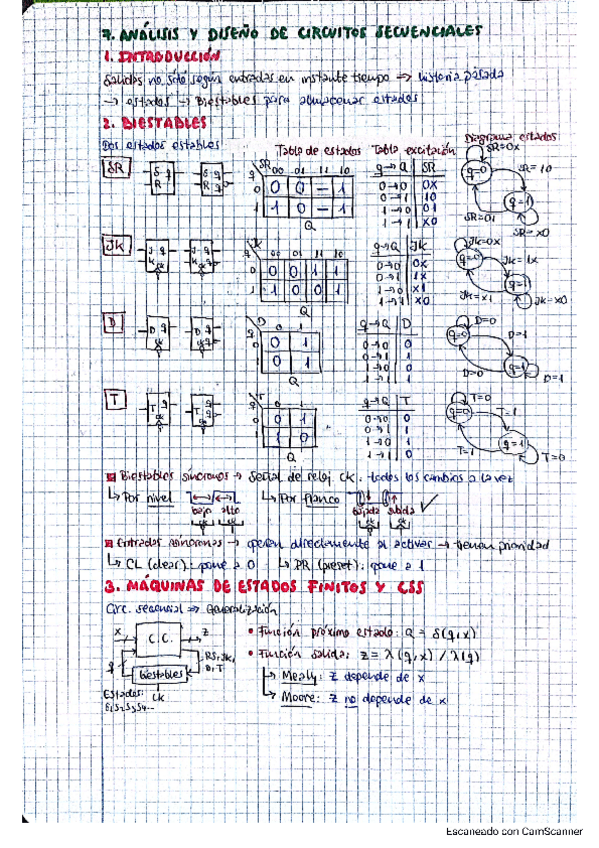 7. ANÁLISIS Y DISEÑO DE CIRCUITOS SECUENCIALES
1. INTRODUCCIÓN
Salidas no sólo según entradas en instante tiempo → historia pasada
→ estados → Biestables para almacenar estados
2. BIESTABLES
Dos estados estables: Tabla de estados Tabla excitación Diagrama estados
SR S q R S q R q SR 00 01 11 10 q→Q SR q=0 SR=0X
0 0 0 – 1 0→0 0X SR=10
1 1 0 – 1 0→1 10 q=1
Q 1→0 01 SR=01
1→1 X0 SR=X0
JK J q K J q K q JK 00 01 11 10 q→Q JK q=0 JK=0X
0 0 0 1 1 0→0 0X JK=1X
1 1 0 0 1 0→1 1X q=1
Q 1→0 X1 JK=X1
1→1 X0 JK=X0
D D q D q q D 0 1 q→Q D q=0 D=0
0 0 1 0→0 0 D=1
1 0 1 0→1 1 q=1
Q 1→0 0 D=0
1→1 1 D=1
T T q T q q T 0 1 q→Q T q=0 T=0
0 0 1 0→0 0 T=1
1 1 0 0→1 1 q=1
Q 1→0 1 T=1
1→1 0 T=0
Biestables síncronos → Señal de reloj CK. todos los cambios a la vez
↳ Por nivel ↳ Por flanco ✓
bajo alto bajada subida
Entradas asíncronas → operan directamente al activar → tienen prioridad
↳ CL (clear): pone a 0 ↳ PR (preset): pone a 1
3. MÁQUINAS DE ESTADOS FINITOS Y CSS
Circ. secuencial → Generalización
X C.C. Z • Función próximo estado: Q = δ(q,x)
q RS, JK, D, T • Función salida: z = λ(q,x) / λ(q)
biestables ↳ Mealy: z depende de x
Estados: CK ↳ Moore: z no depende de x
Escaneado con CamScanner